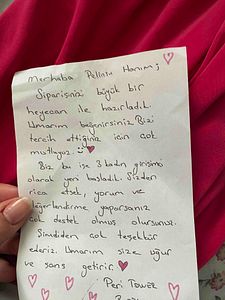 Merhaba Pelinsu Hanım;
Siparişinizi büyük bir
heyecan ile hazırladık.
Umarım beğenirsiniz. Bizi
tercih ettiğiniz için çok
mutluyuz.
Biz bu işe 3 kadın girişimi
olarak yeni başladık. Sizden
rica etsek, yorum ve
değerlendirme yaparsanız
çok destek olmuş olursunuz.
Şimdiden çok teşekkür
ederiz. Umarım size uğur
ve şans getirir
Peri Tower